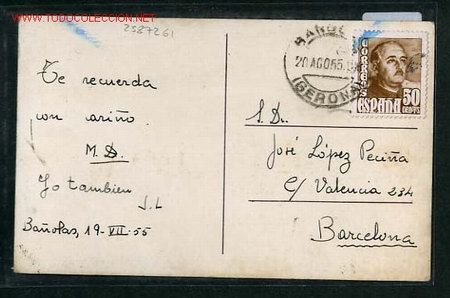 WWW.TODOCOLECCION.NET
2587261
Te recuerda
con cariño
M.D.
Yo tambien
J.L
Bañolas, 19-VII-55
BAÑOL
20 AGO 55
(GERONA)
CORREOS
ESPAÑA
50
CENTIMOS
S.D.
José López Peciña
C/ Valencia 234
Barcelona